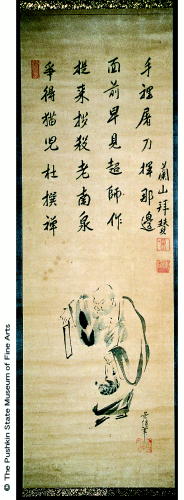 手裡屠刀揮那邊
面前早見超師作
從来拶殺老南泉
爭得猫児杜撰禅
蘭山拜賛
© The Pushkin State Museum of Fine Arts